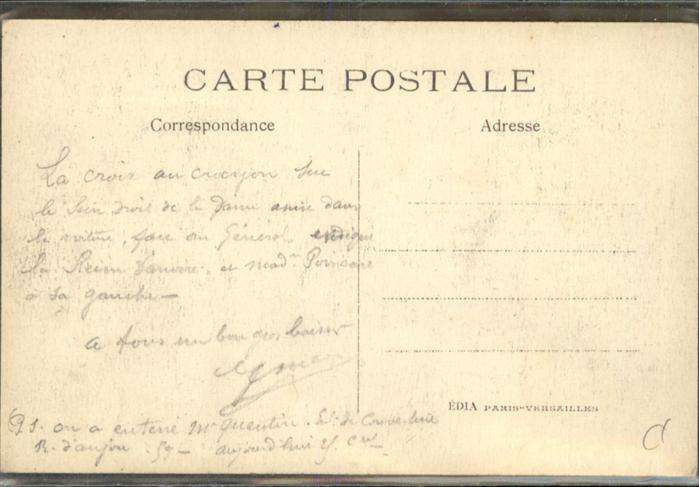 CARTE POSTALE
Correspondance
Adresse
La croix au crayon sur
le sein droit de la Dame assise dans
la voiture, face au Général indique
la Reine et Mad. Poincaré
à sa gauche —
a tous un bon gros baiser
PS. on a enterré Mr Quentin
R. d'anjou 59 — aujourd'hui
ÉDIA PARIS-VERSAILLES